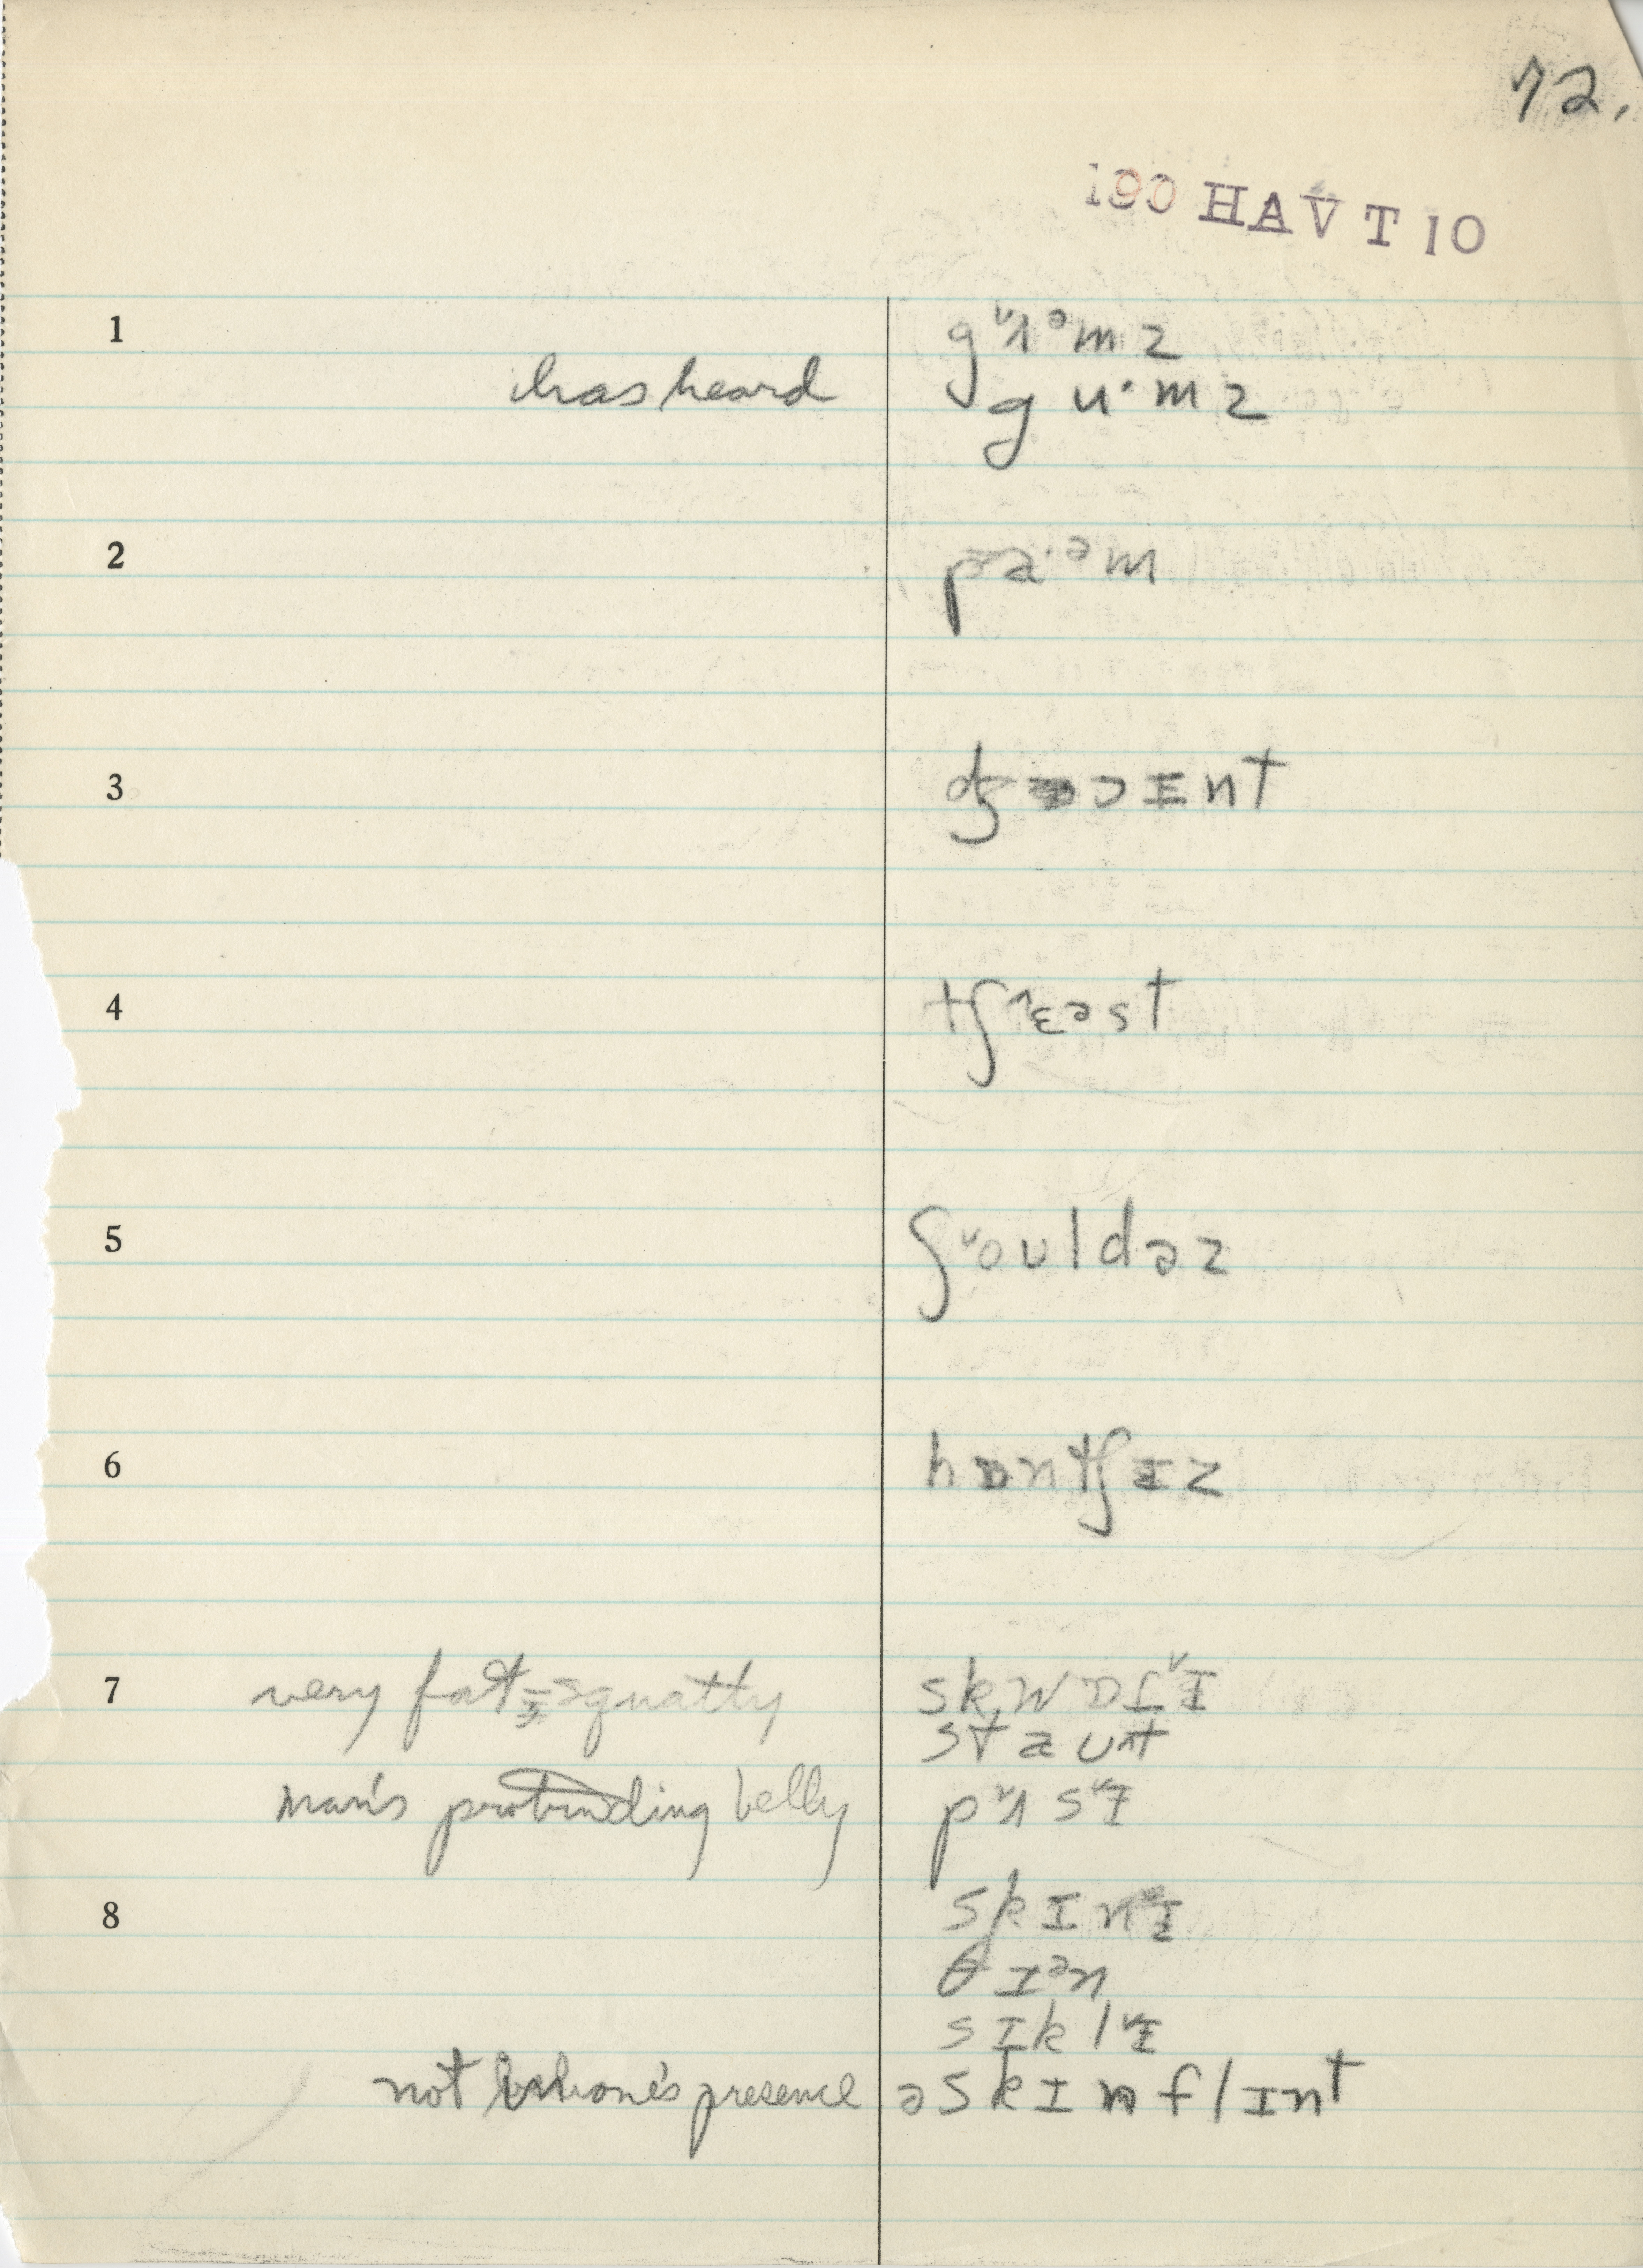 72.
190 HAV T 10
1 gᵛʌᵊmz
has heard gu·mz
2 pa·ᵊm
3 dʒɔɪnt
4 tʃ^ɛəst
5 ʃᵛoʊldəz
6 hɒntʃɪz
7 very fat = squatty skwɒtᵛɪ
staʊt
man's protruding belly pᵛʌsᵛɪ
8 skɪnᵛɪ
θɪᵊn
sɪklᵛɪ
not one's presence əskɪnflɪnt